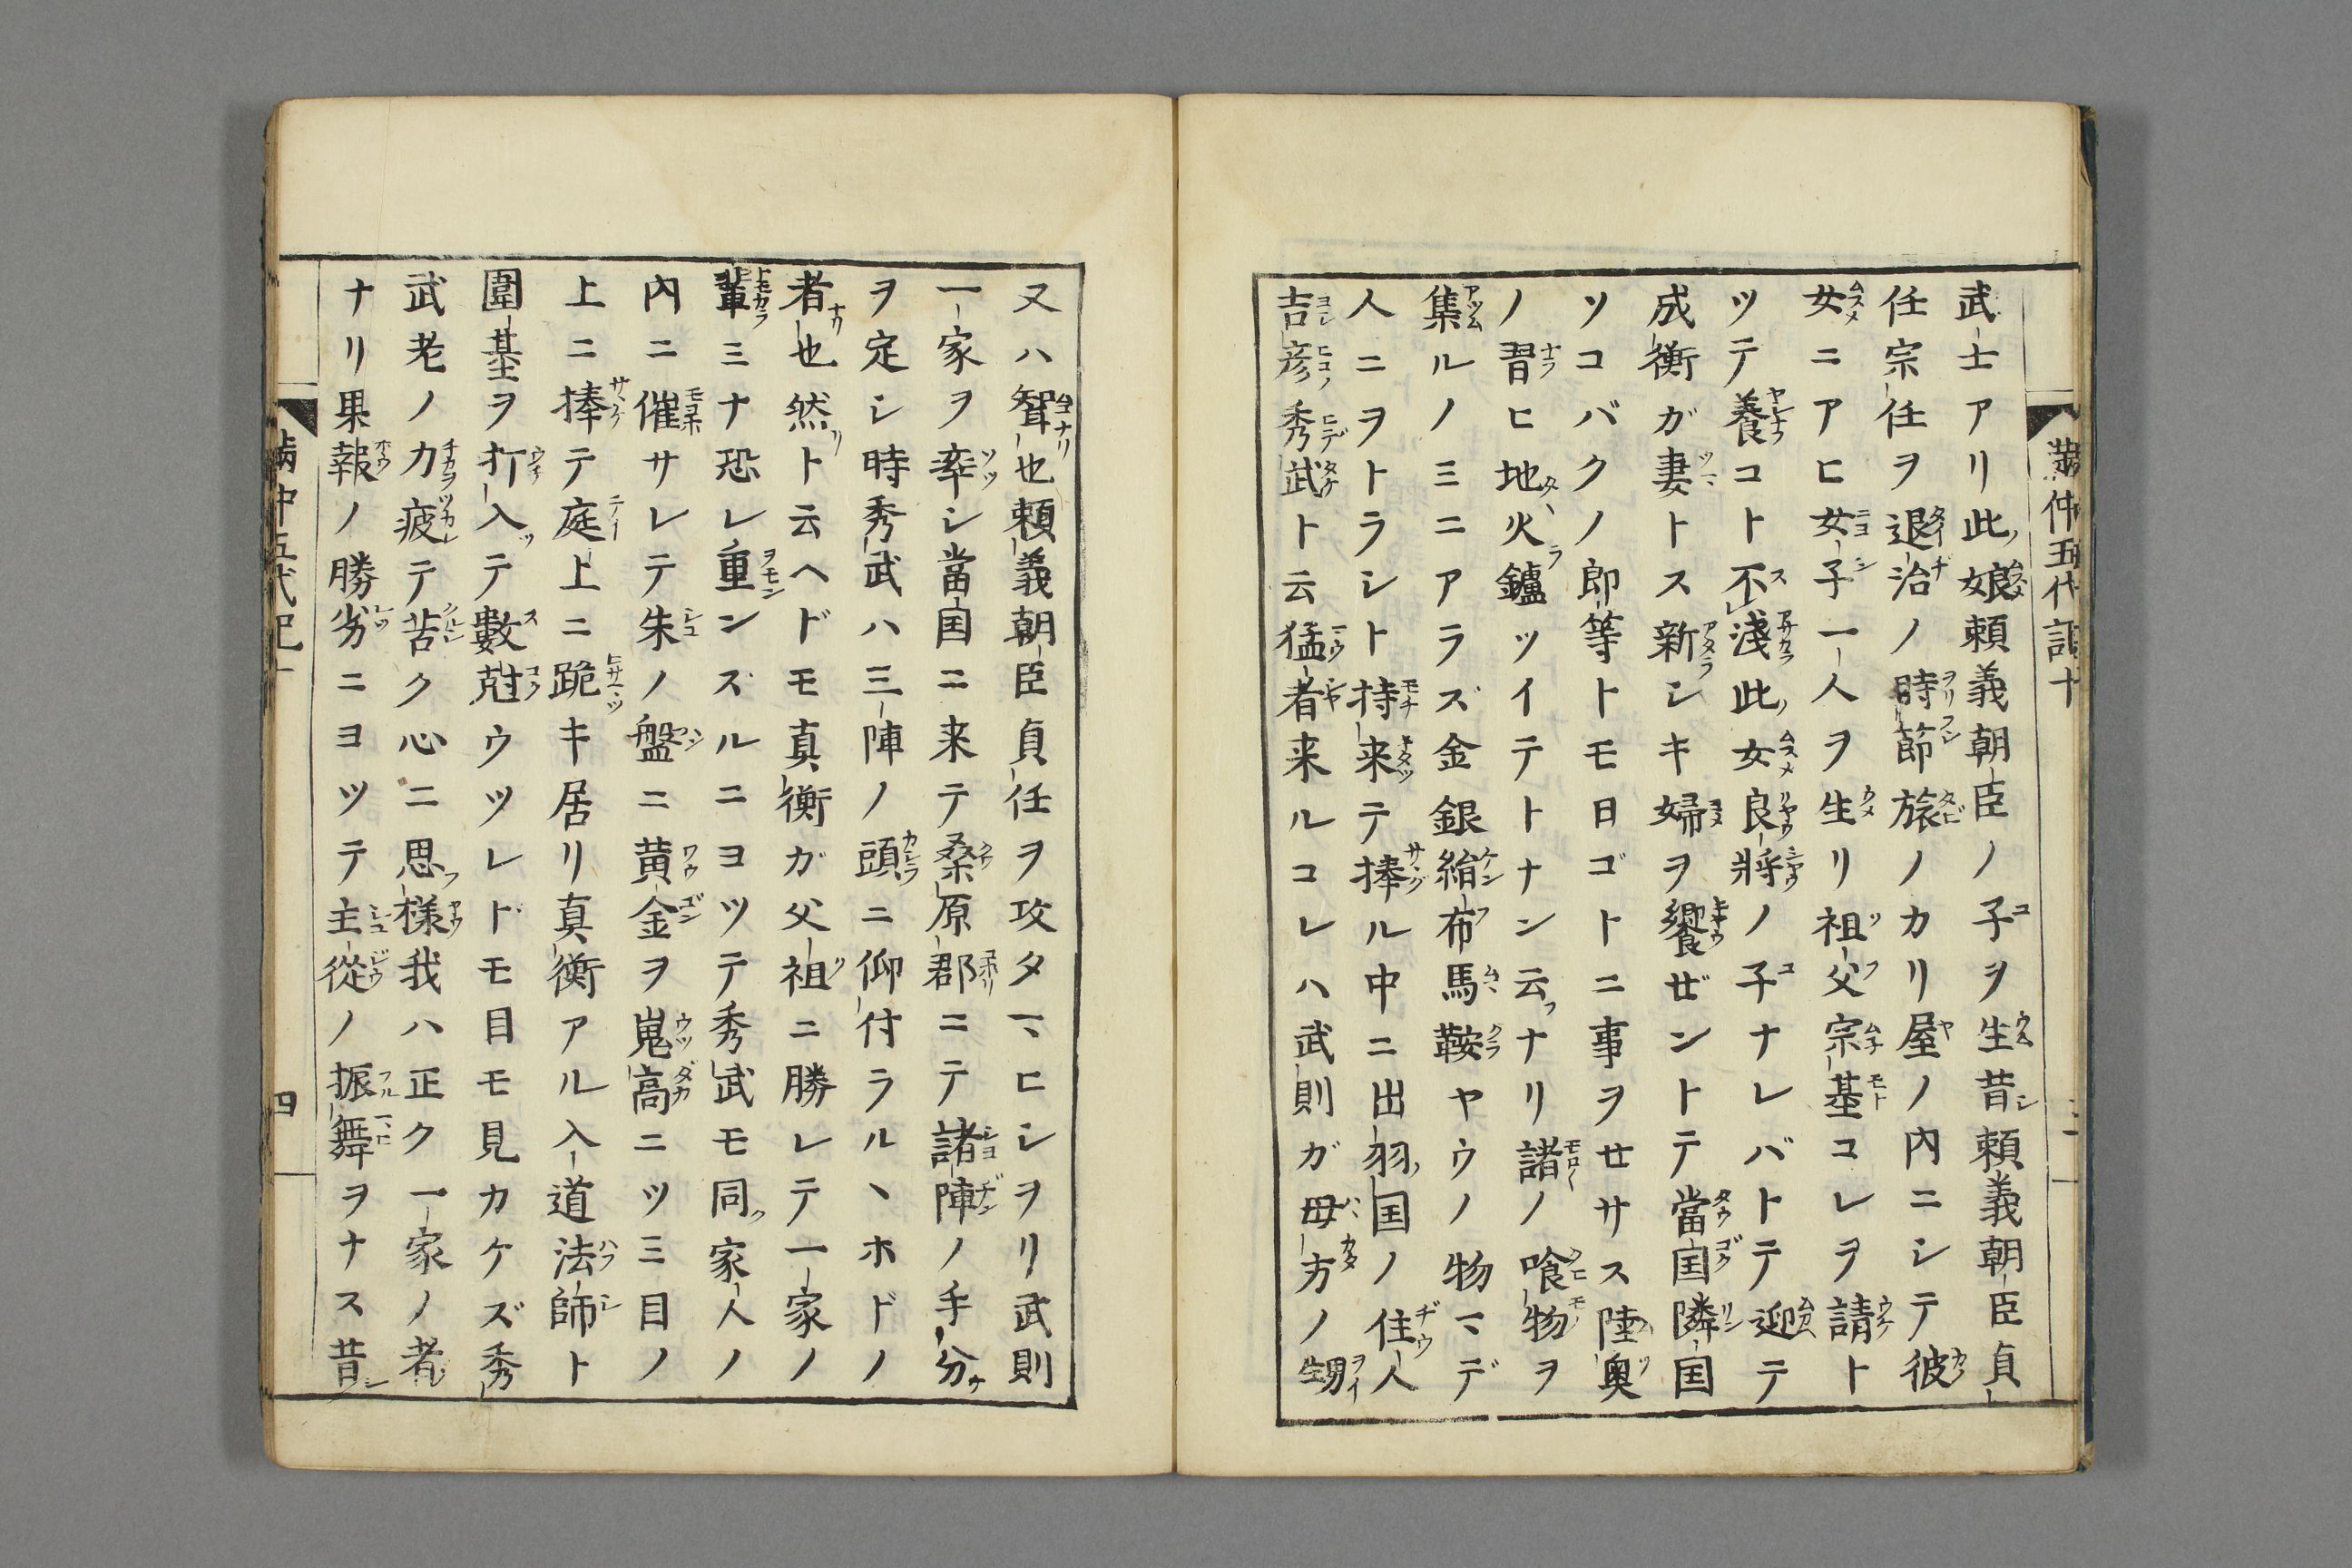 武士アリ此娘頼義朝臣ノ子ヲ生昔頼義朝臣貞
任宗任ヲ退治ノ時節旅ノカリ屋ノ内ニシテ彼
女ニアヒ女子一人ヲ生リ祖父宗基コレヲ請ト
ツテ養コト不淺此女良将ノ子ナレバトテ迎テ
成衡ガ妻トス新シキ婦ヲ饗ゼントテ當国隣国
ソコバクノ郎等トモ日ゴトニ事ヲセサス陸奥
ノ習ヒ地火鑪ツイテトナン云ナリ諸ノ喰物ヲ
集ルノミニアラズ金銀絹布馬鞍ヤウノ物マデ
人ニヲトラシト持来テ捧ル中ニ出羽国ノ住人
吉彦秀武ト云猛者来ルコレハ武則ガ母方ノ甥
又ハ聟也頼義朝臣貞任ヲ攻タマヒシヲリ武則
一家ヲ率シ當国ニ来テ桑原郡ニテ諸陣ノ手分
ヲ定シ時秀武ハ三陣ノ頭ニ仰付ラルヽホドノ
者也然ト云ヘドモ真衡ガ父祖ニ勝レテ一家ノ
輩ミナ恐レ重ンズルニヨツテ秀武モ同家人ノ
内ニ催サレテ朱ノ盤ニ黄金ヲ嵬高ニツミ目ノ
上ニ捧テ庭上ニ跪キ居リ真衡アル入道法師ト
圍基ヲ打入テ數尅ウツレドモ目モ見カケズ秀
武老ノ力疲テ苦ク心ニ思様我ハ正ク一家ノ者
ナリ果報ノ勝劣ニヨツテ主從ノ振舞ヲナス昔
四